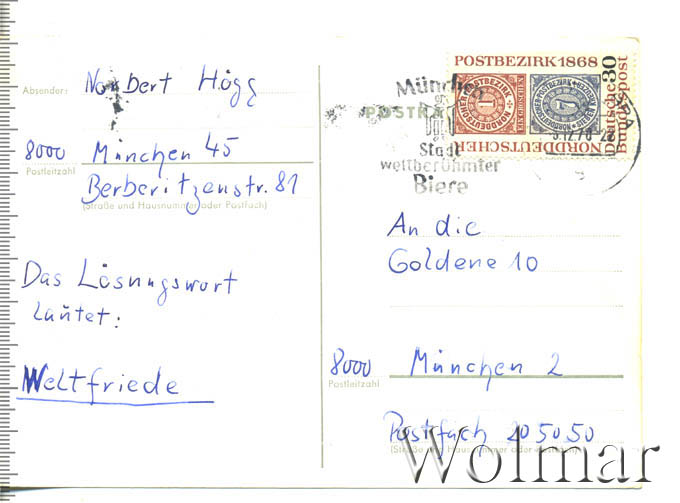 Absender:
Norbert Högg
8000 München 45
Postleitzahl
Berberitzenstr. 81
(Straße und Hausnummer oder Postfach)
Das Lösungswort
lautet:
Weltfriede
POSTBEZIRK 1868
NORDDEUTSCHER
Deutsche Bundespost
30
München
Stadt
weltberühmter
Biere
An die
Goldene 10
8000 München 2
Postleitzahl
Postfach 20 50 50
Wolmar